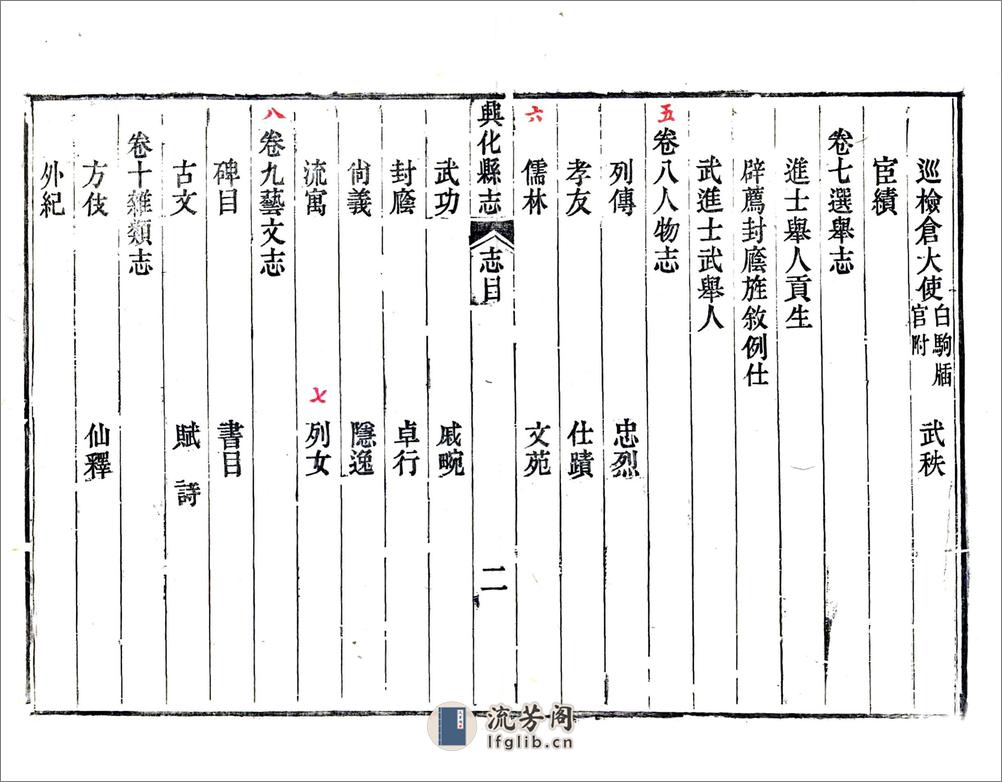 巡檢倉大使白駒牐官附 武秩
宦績
卷七選舉志
進士舉人貢生
辟薦封廕旌敘例仕
武進士武舉人
五 卷八人物志
列傳 忠烈
孝友 仕蹟
六 儒林 文苑
興化縣志 志目 二
武功 戚畹
封廕 卓行
尙義 隱逸
流寓 七 列女
八 卷九藝文志
碑目 書目
古文 賦 詩
卷十雜類志
方伎 仙釋
外紀
流芳阁
lfglib.cn